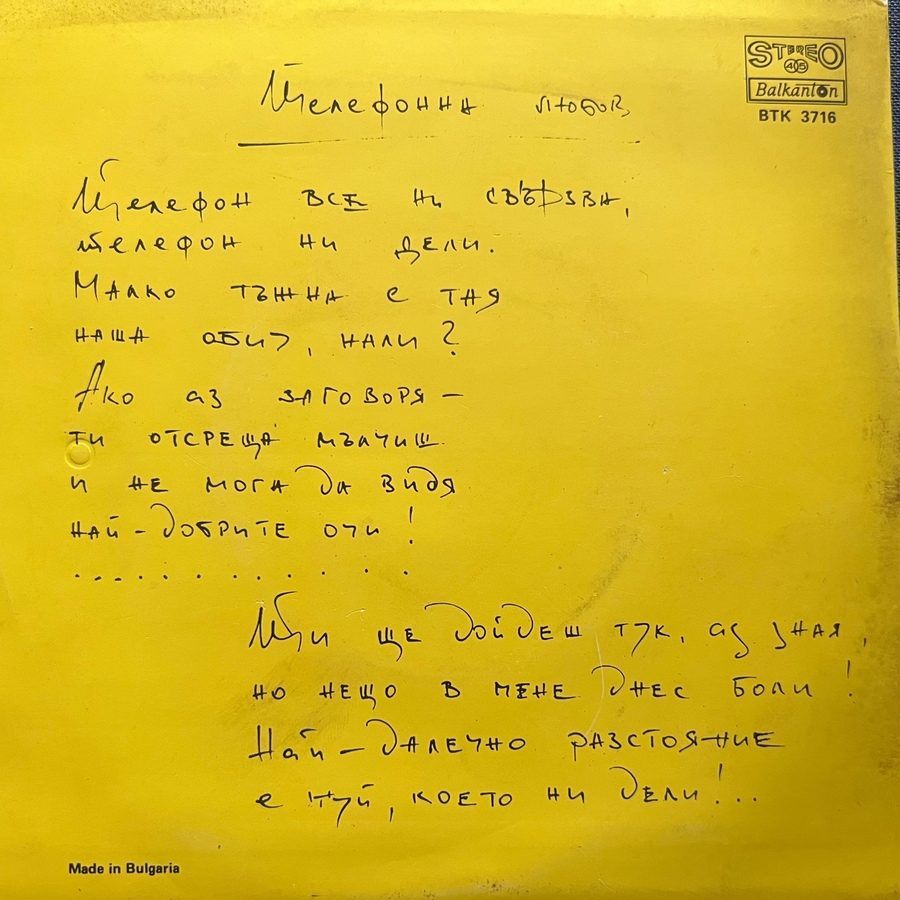 STEREO
405
Balkanton
BTK 3716
Телефонна любов
Телефон все ни свързва,
телефон ни дели.
Малко тъжна е тая
наша обич, нали?
Ако аз заговоря –
ти отсреща мълчиш
и не мога да видя
най-добрите очи!
. . . . . . . . . . . .
Ти ще дойдеш тук, аз зная,
но нещо в мене днес боли!
Най-далечно разстояние
е туй, което ни дели!...
Made in Bulgaria